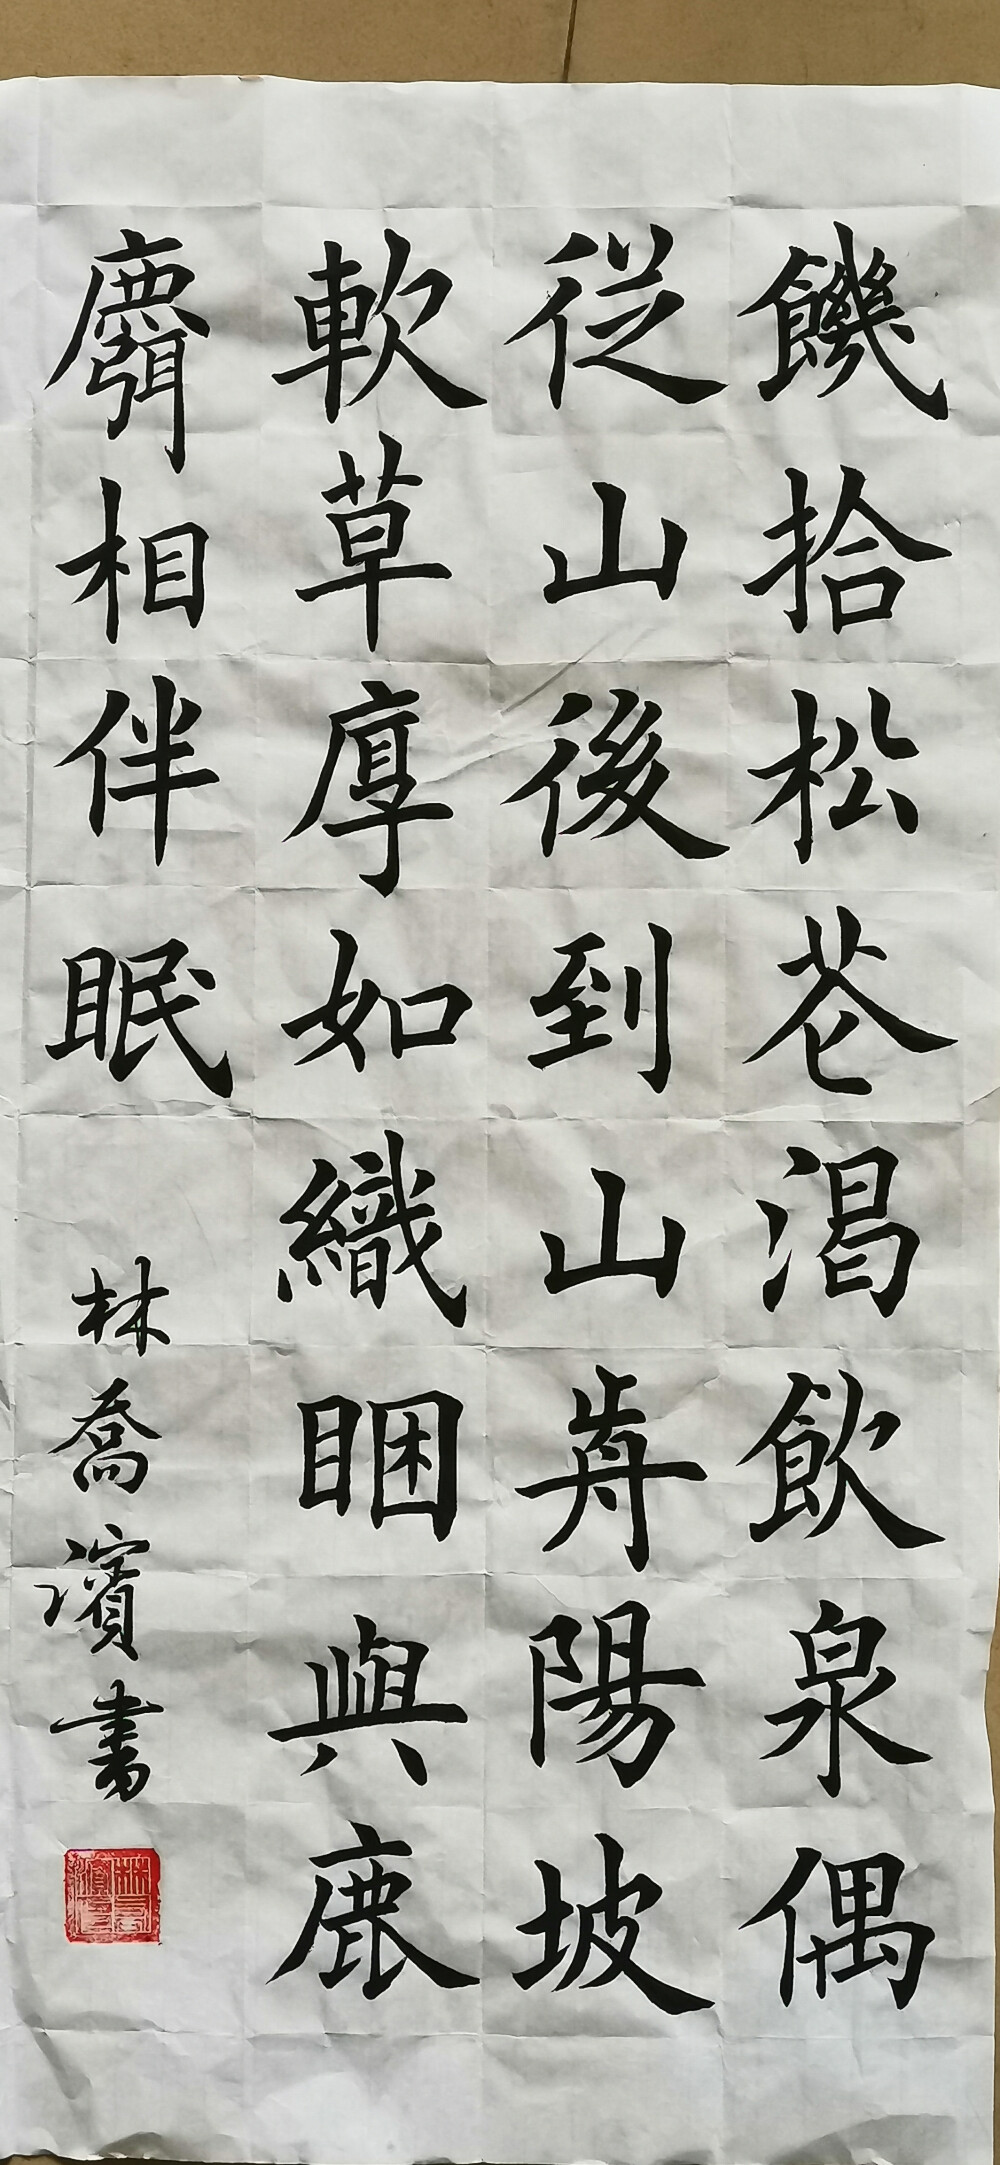 饑拾松花渴飲泉偶
從山後到山前陽坡
軟草厚如織困與鹿
麛相伴眠
林喬濱書